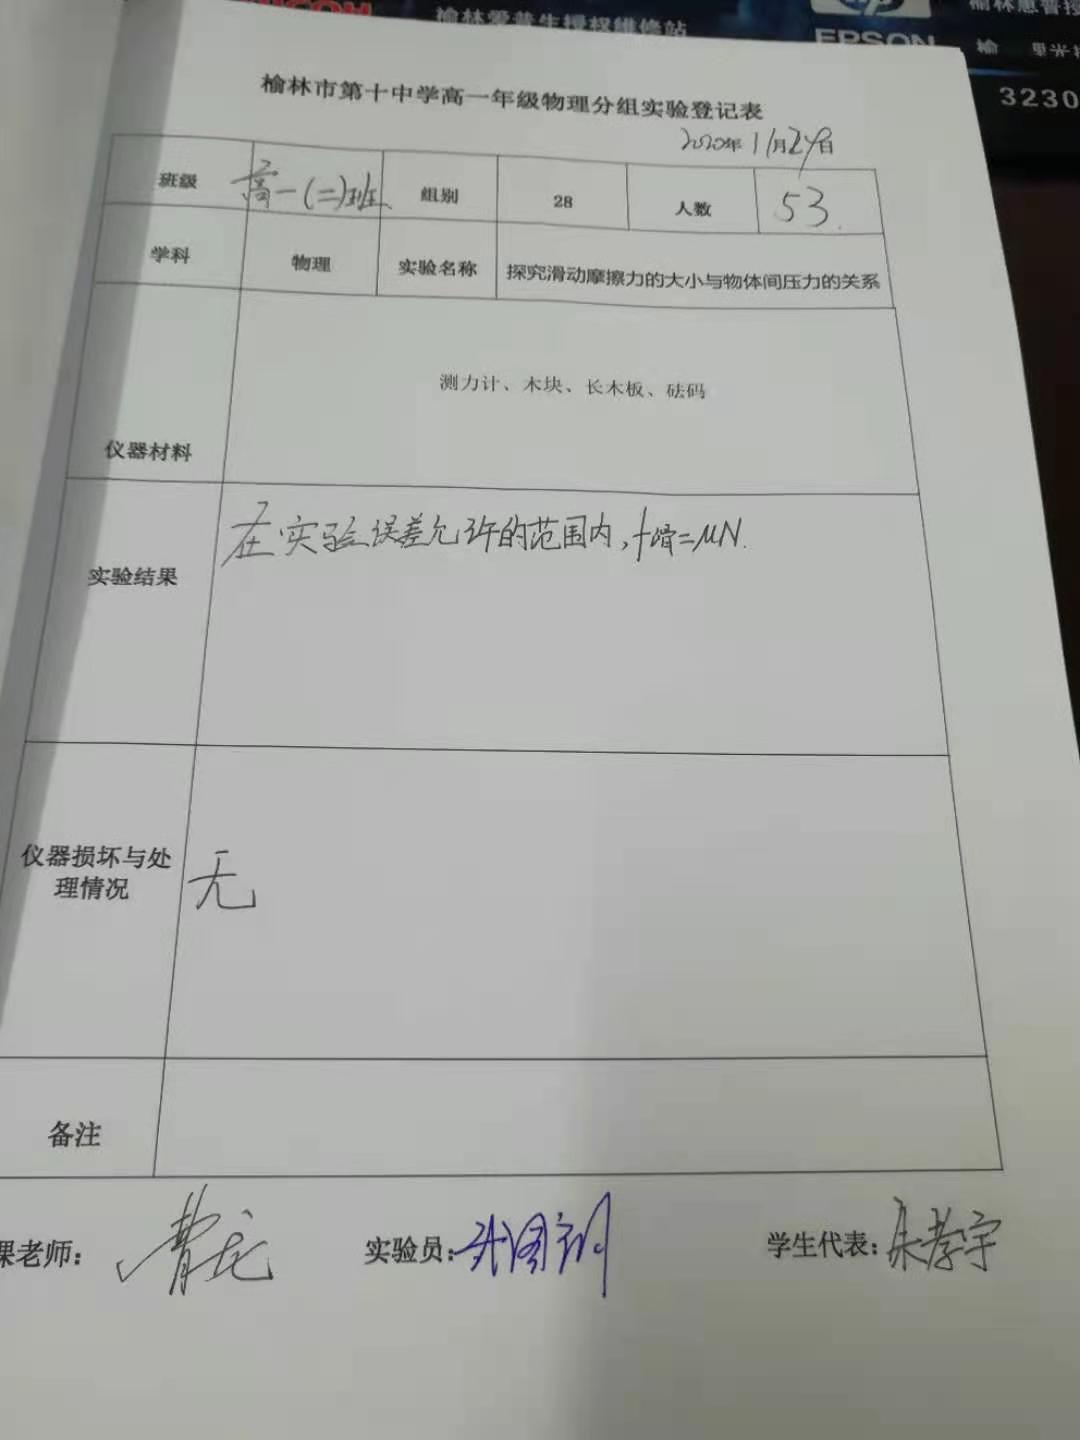 RICOH
榆林爱普生授权维修站
hp
EPSON
榆林惠普授
榆
3230
榆林市第十中学高一年级物理分组实验登记表
2020年11月24日
班级 高一(二)班 组别 28 人数 53.
学科 物理 实验名称 探究滑动摩擦力的大小与物体间压力的关系
仪器材料 测力计、木块、长木板、砝码
实验结果 在实验误差允许的范围内,f滑=μN.
仪器损坏与处
理情况 无
备注
课老师:
实验员:
学生代表:朱孝宇